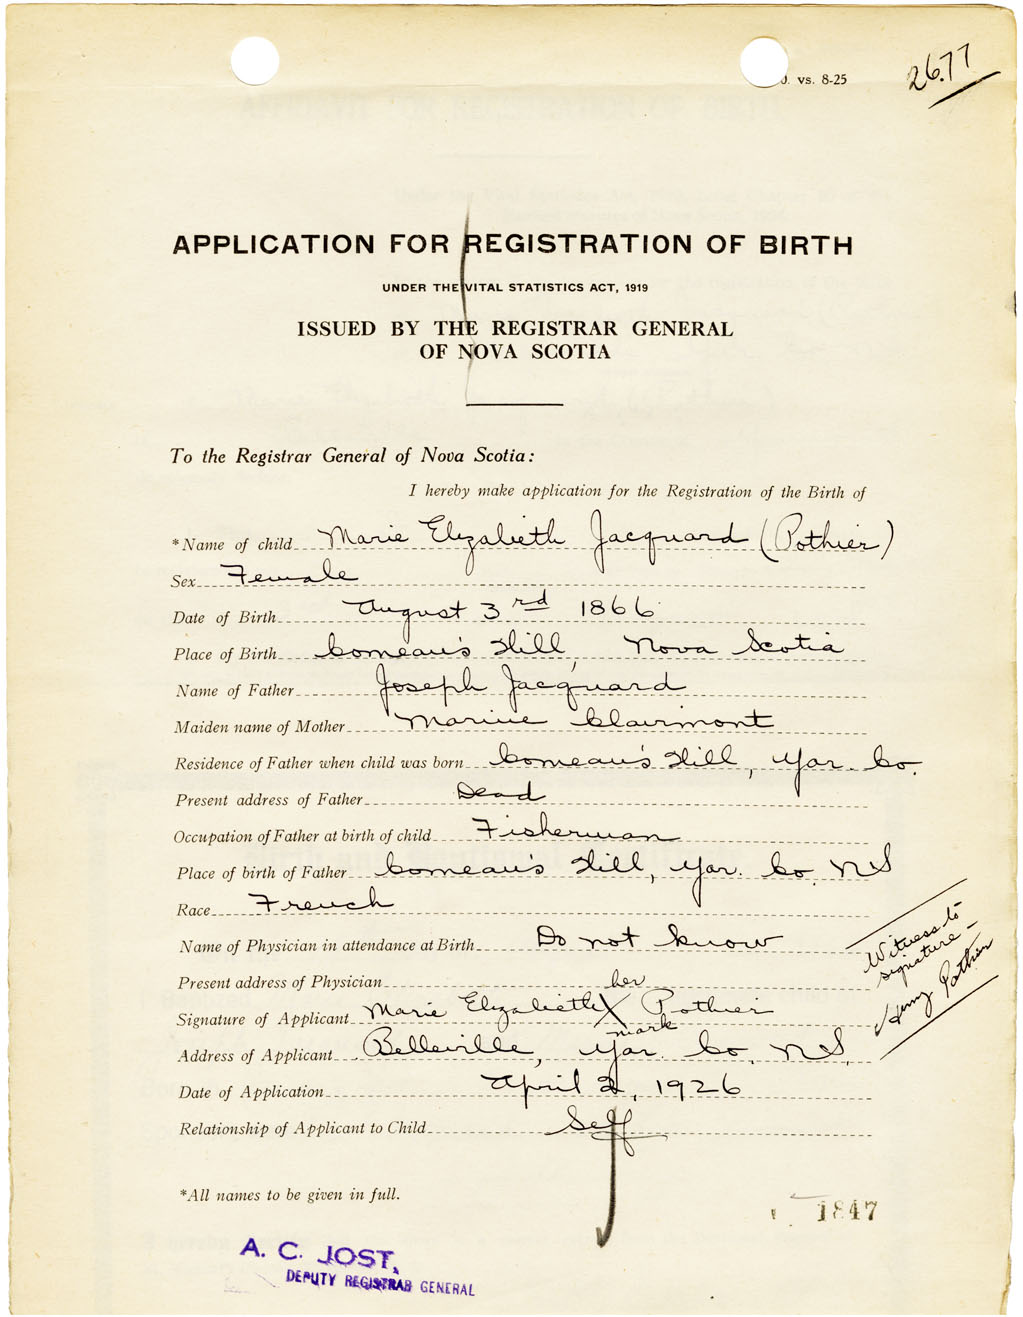 vs. 8-25
2677
APPLICATION FOR REGISTRATION OF BIRTH
UNDER THE VITAL STATISTICS ACT, 1919
ISSUED BY THE REGISTRAR GENERAL
OF NOVA SCOTIA
To the Registrar General of Nova Scotia:
I hereby make application for the Registration of the Birth of
*Name of child Marie Elizabieth Jacquard (Pothier)
Sex Female
Date of Birth August 3rd 1866
Place of Birth Comeau's Hill, Nova Scotia
Name of Father Joseph Jacquard
Maiden name of Mother Clairmont
Residence of Father when child was born Comeau's Hill, Yar. Co.
Present address of Father Dead
Occupation of Father at birth of child Fisherman
Place of birth of Father Comeau's Hill, Yar. Co. NS
Race French
Name of Physician in attendance at Birth Do not know
Present address of Physician
her
Signature of Applicant Marie Elizabieth X Pothier
mark
Witness to
signature –
Henry Pothier
Address of Applicant Belleville, Yar. Co. NS.
Date of Application April 2, 1926
Relationship of Applicant to Child Self
*All names to be given in full.
1847
A. C. JOST,
DEPUTY REGISTRAR GENERAL